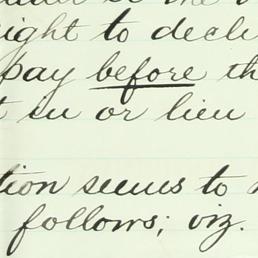 ight to decli
pay before th
t su or lieu
tion seems to
follows; viz.